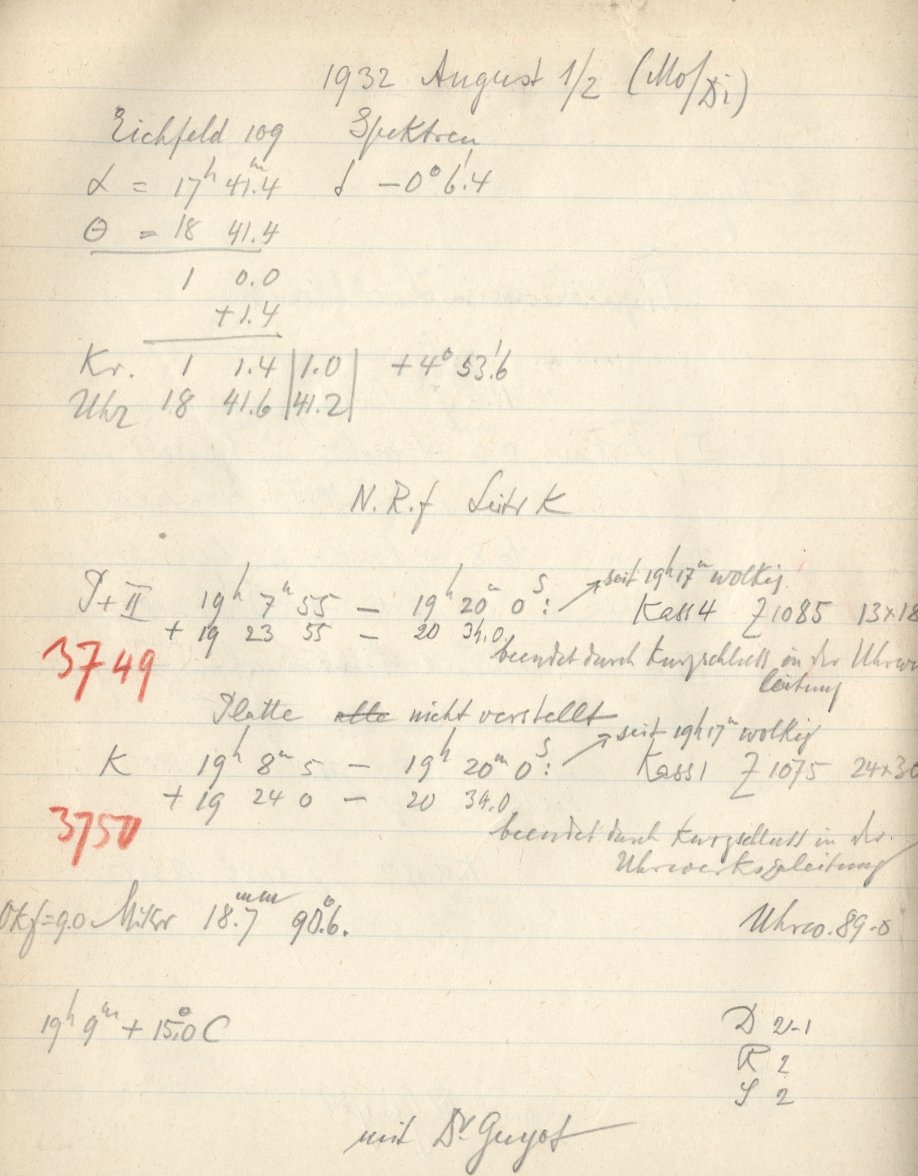 1932 August 1/2 (Mo/Di)
Eichfeld 109 Spektren
α = 17ʰ 41.ᵐ4 δ −0° 6.'4
θ = 18 41.4
1 0.0
+1.4
Kr. 1 1.4 |1.0| +4° 53.'6
Uhr 18 41.6 |41.2|
N.R.f Leitr K
P+II 19ʰ 7ᵐ 55 − 19ʰ 20ᵐ 0ˢ: seit 19ʰ17ᵐ wolkig.
Kass4 Z1085 13×18
+ 19 23 55 − 20 34.0
3749
beendet durch Kurzschluss in der Uhrw
leitung
Platte alle nicht verstellt
seit 19ʰ17ᵐ wolkig
K 19ʰ 8ᵐ 5 − 19ʰ 20ᵐ 0ˢ: Kass1 Z1075 24×30
+ 19 24 0 − 20 34.0
3750
beendet durch Kurzschluss in der
Uhrwerksleitung
Okf=9.0 18.7ᵐᵐ 90.°6. Uhrco. 89.0
19ʰ 9ᵐ + 15.°0 C
D 2-1
R 2
S 2
mit Dr Guyot